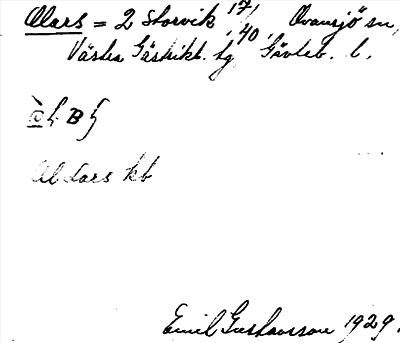 Olars = 2 Storvik 1⁷/1 Ovansjö sn,
Västra Gästrikl. tg 40, Gävleb. l.
Ol Lars kb
Emil Gustavsson 1929.